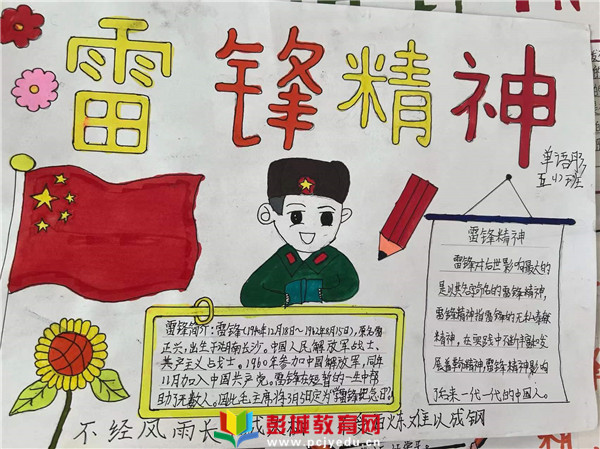 雷锋精神
单语彤
五(1)班
雷锋简介:雷锋(1940年12月18日~1962年8月15日),原名雷
正兴,出生于湖南长沙。中国人民解放军战士、
共产主义战士。1960年参加中国解放军,同年
11月加入中国共产党。雷锋在短暂的一生中帮
助了无数人。因此毛主席将3月5日定为"雷锋纪念日"
雷锋精神
雷锋对后世影响最大的
是以其名命名的雷锋精神,
雷锋精神指雷锋的无私奉献
精神,在实践中不断
雷锋精神影响
了后来一代一代的中国人。
不经风雨长
炼难以成钢
彭城教育网
www.pcjyedu.cn